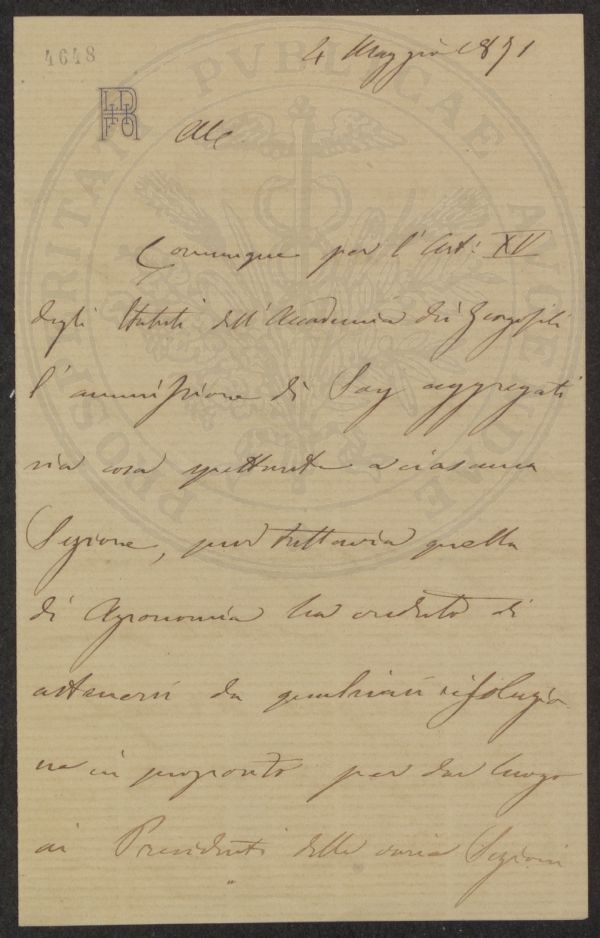 4648
4 Maggio 1871
Comunque per l'Art: XV
degli Statuti dell'Accademia dei Georgofili
l'ammissione di Soci aggregati
sia cosa spettante a ciascuna
Sezione, pur tuttavia quella
di Agronomia ha creduto di
astenersi da qualsiasi risoluzio-
ne in proposito per dar luogo
ai Presidenti delle varie Sezioni
PROSPERITATI PVBLICAE AVGENDAE